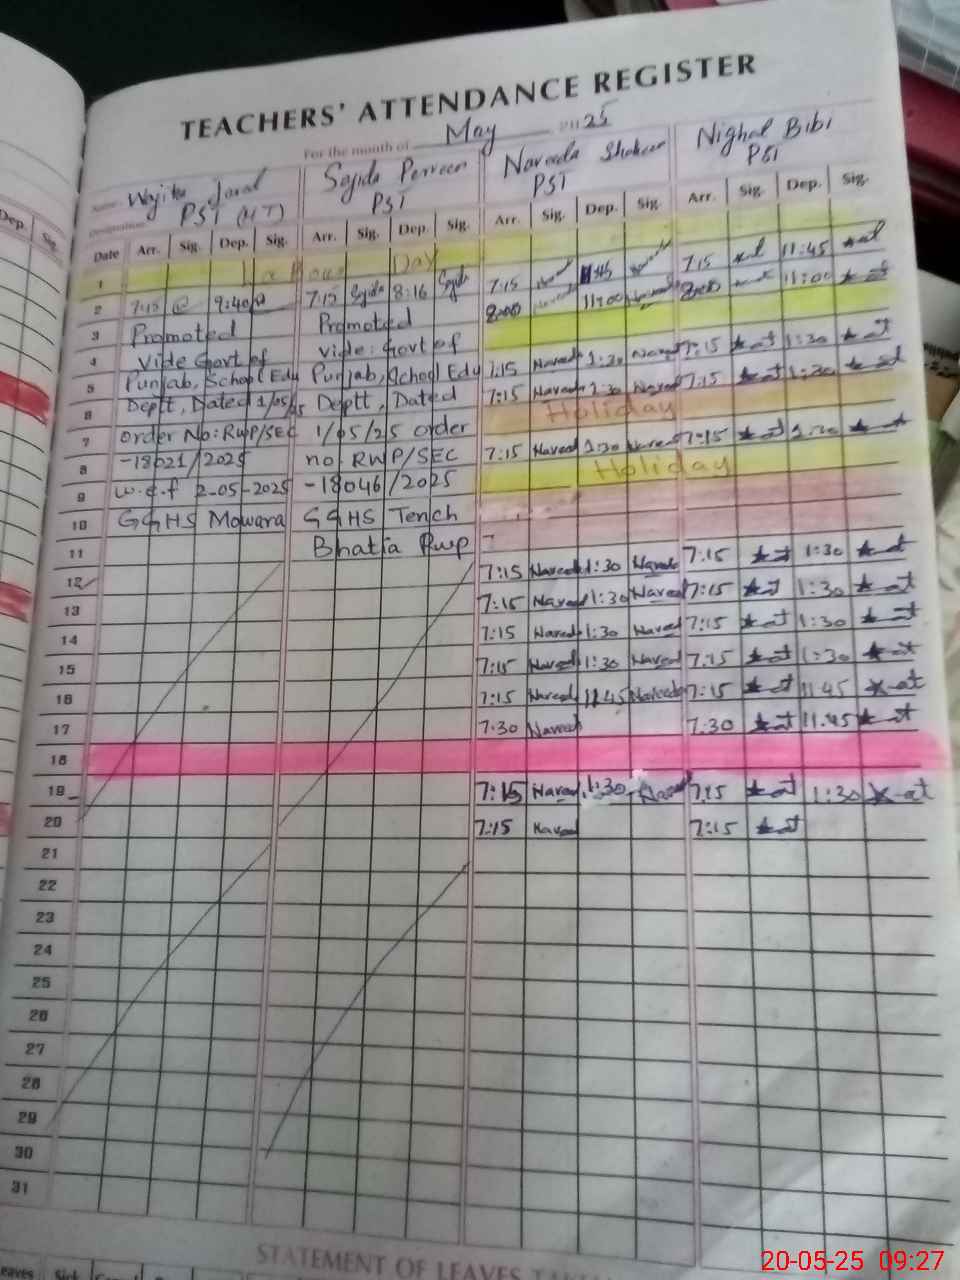 TEACHERS' ATTENDANCE REGISTER
For the month of May 2025
Name Wajiha Sajida Perveen Naveeda Shaheen Nighat Bibi
Designation PST (HT) PST PST PST
Date Arr. Sig. Dep. Sig. Arr. Sig. Dep. Sig. Arr. Sig. Dep. Sig. Arr. Sig. Dep. Sig.
1 Labour Day
2 7:15 9:40 7:15 Sajida 8:16 Sajida 7:15 7:15 11:45
3 Promoted Promoted 8:00 11:00 8:00 11:00
4 Vide Govt of Vide: Govt of
5 Punjab, School Edu Punjab, School Edu 7:15 Naveed 1:30 Naveed 7:15 1:30
6 Deptt, Dated 1/05/25 Deptt, Dated 7:15 Naveed 1:30 Naveed 7:15 1:30
7 order No: RWP/SEC 1/05/25 order Holiday
8 -18021/2025 no. RWP/SEC 7:15 Naveed 1:30 Naveed 7:15 1:30
9 w.e.f 2-05-2025 -18046/2025 Holiday
10 GGHS Mowara GGHS Tench
11 Bhatta Rwp
12 7:15 Naveed 1:30 Naveed 7:15 1:30
13 7:15 Naveed 1:30 Naveed 7:15 1:30
14 7:15 Naveed 1:30 Naveed 7:15 1:30
15 7:15 Naveed 1:30 Naveed 7:15 1:30
16 7:15 Naveed 11:45 Naveed 7:15 11:45
17 7:30 Naveed 7:30 11:45
18
19 7:15 Naveed 1:30 Naveed 7:15 1:30
20 7:15 Naveed 7:15
21
22
23
24
25
26
27
28
29
30
31
STATEMENT OF LEAVES
20-05-25 09:27
Dep. Sig.
Leaves Sick